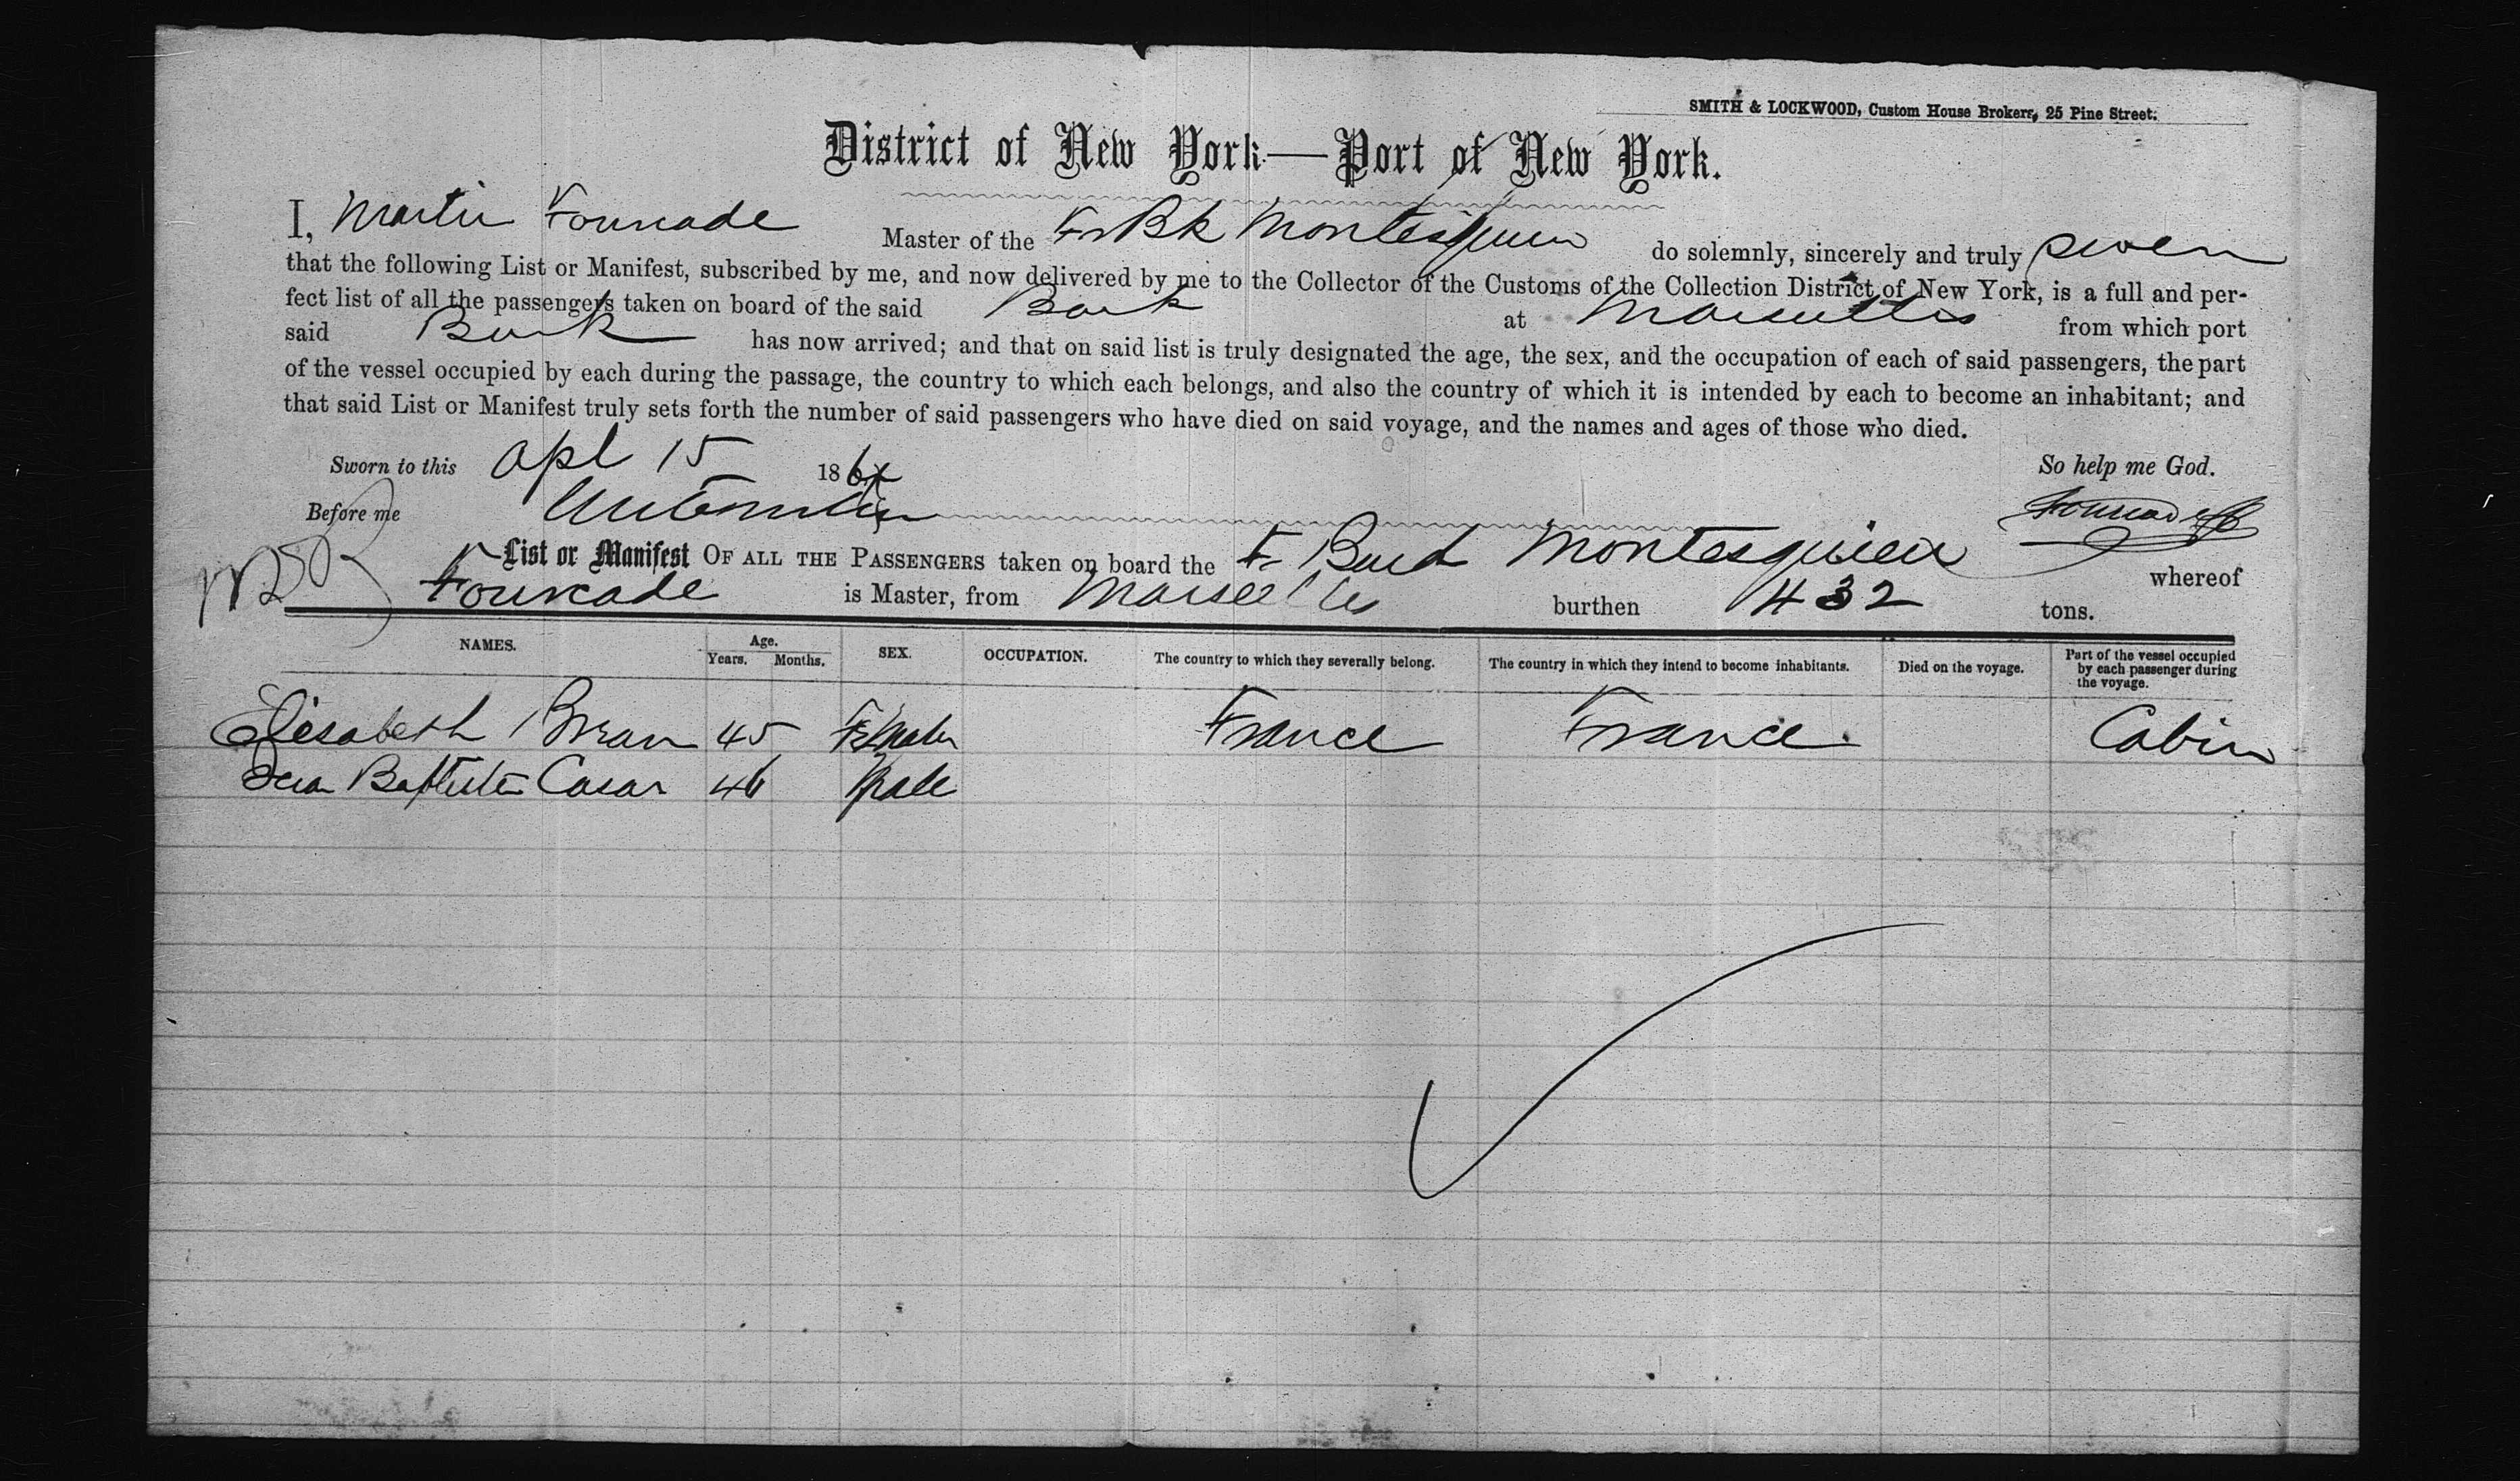 SMITH & LOCKWOOD, Custom House Brokers, 25 Pine Street.
District of New York—Port of New York.
I, Martin Fourcade Master of the Fr Bk Montesquieu do solemnly, sincerely and truly swear
that the following List or Manifest, subscribed by me, and now delivered by me to the Collector of the Customs of the Collection District of New York, is a full and per-
fect list of all the passengers taken on board of the said Bark at Marseilles from which port
said Bark has now arrived; and that on said list is truly designated the age, the sex, and the occupation of each of said passengers, the part
of the vessel occupied by each during the passage, the country to which each belongs, and also the country of which it is intended by each to become an inhabitant; and
that said List or Manifest truly sets forth the number of said passengers who have died on said voyage, and the names and ages of those who died.
Sworn to this Apl 15 186 So help me God.
Before me Fourcade
List or Manifest OF ALL THE PASSENGERS taken on board the Fr Bark Montesquieu whereof
Fourcade is Master, from Marseilles burthen 432 tons.
NAMES. Age. Years. Months. SEX. OCCUPATION. The country to which they severally belong. The country in which they intend to become inhabitants. Died on the voyage. Part of the vessel occupied by each passenger during the voyage.
Elisabeth 45 Female France France Cabin
Jean Baptiste Casar 46 Male